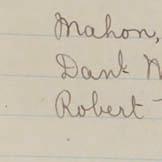 Mahon,
Dank
Robert